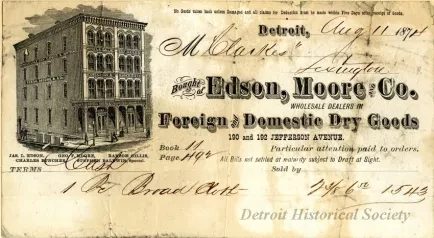 No Goods taken back unless Damaged and all claims for Deduction must be made within Five Days after receipt of Goods.
Detroit, Aug 11 1874
M Clarkes
Lexington
Bought of Edson, Moore and Co.
WHOLESALE DEALERS IN
Foreign and Domestic Dry Goods
190 and 192 JEFFERSON AVENUE.
JAS. L. EDSON. GEO. F. MOORE. RANSOM GILLIS.
CHARLES BUNCHER. STEPHEN BALDWIN,
Book 11
Page 492
Particular attention paid to orders.
All Bills not settled at maturity subject to Draft at Sight.
TERMS Cash
Sold by
1 Broad Cloth 1543
Detroit Historical Society